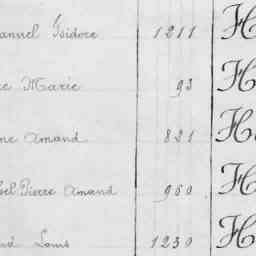 Isidore 1211 H
Marie 93 H
Amand 821 H
Pierre Amand 960 H
Louis 1230 H